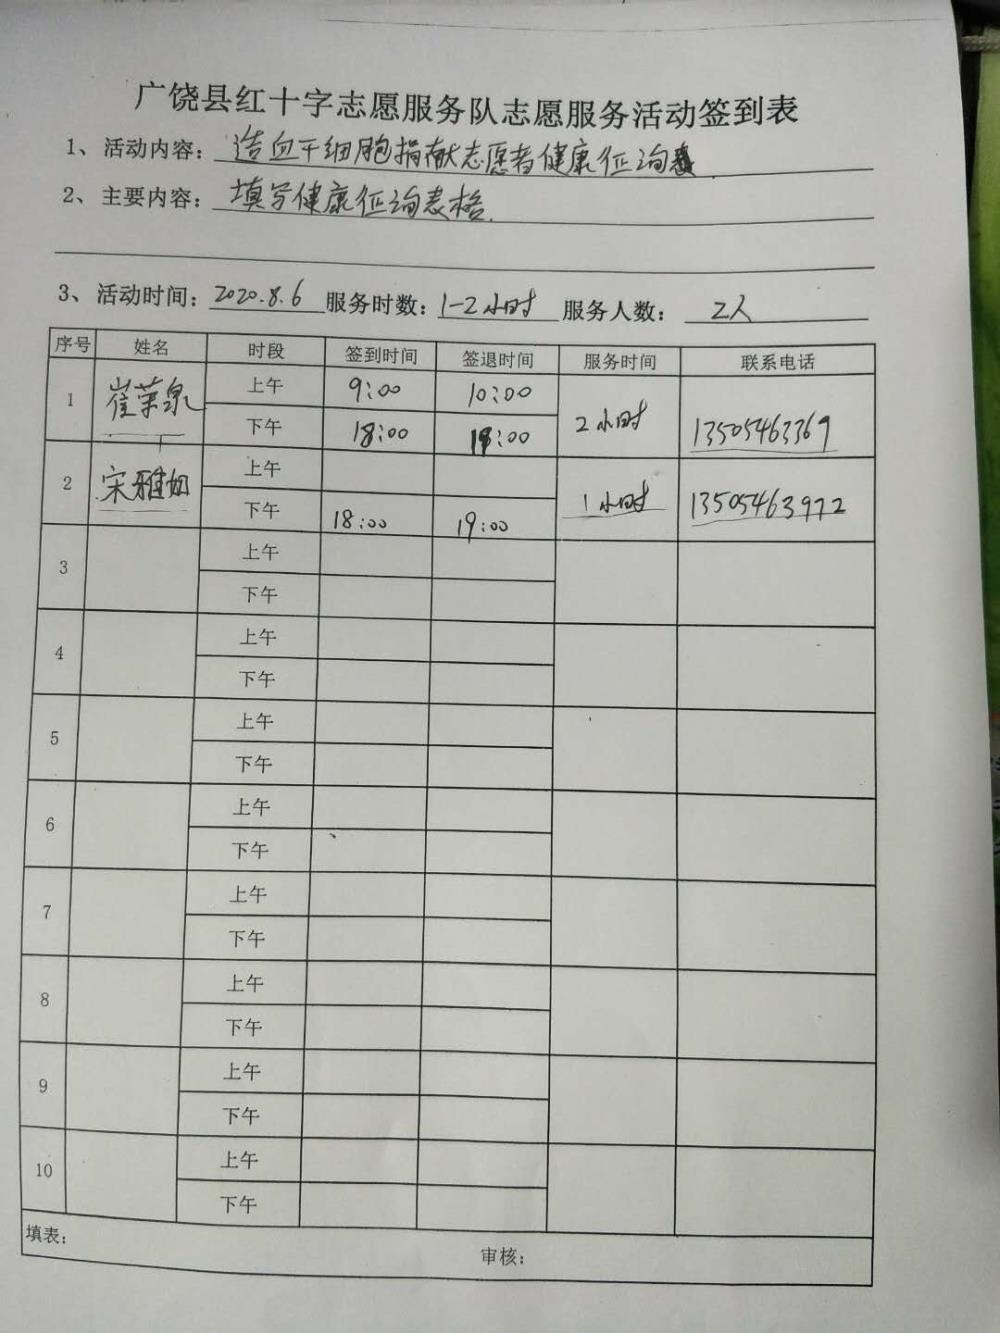 广饶县红十字志愿服务队志愿服务活动签到表
1、活动内容：造血干细胞捐献志愿者健康征询表
2、主要内容：填写健康征询表格.
3、活动时间：2020.8.6 服务时数：1-2小时 服务人数： 2人
序号 姓名 时段 签到时间 签退时间 服务时间 联系电话
1 崔荣泉 上午 9:00 10:00 2小时 13505463369
下午 18:00 19:00
2 宋雅 上午 1小时 13505463972
下午 18:00 19:00
3 上午
下午
4 上午
下午
5 上午
下午
6 上午
下午
7 上午
下午
8 上午
下午
9 上午
下午
10 上午
下午
填表： 审核：